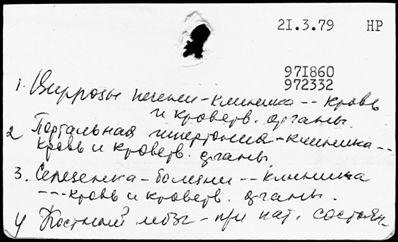 21.3.79 НР
971860
972332
1. Циррозы печени-клиника -- кровь
и кроветв. органы.
2 Портальная гипертония-клиника--
кровь и кроветв. органы.
3. Селезенка-болезни -- клиника
---кровь и кроветв. органы.
4 Костный мозг-при пат. состоян.